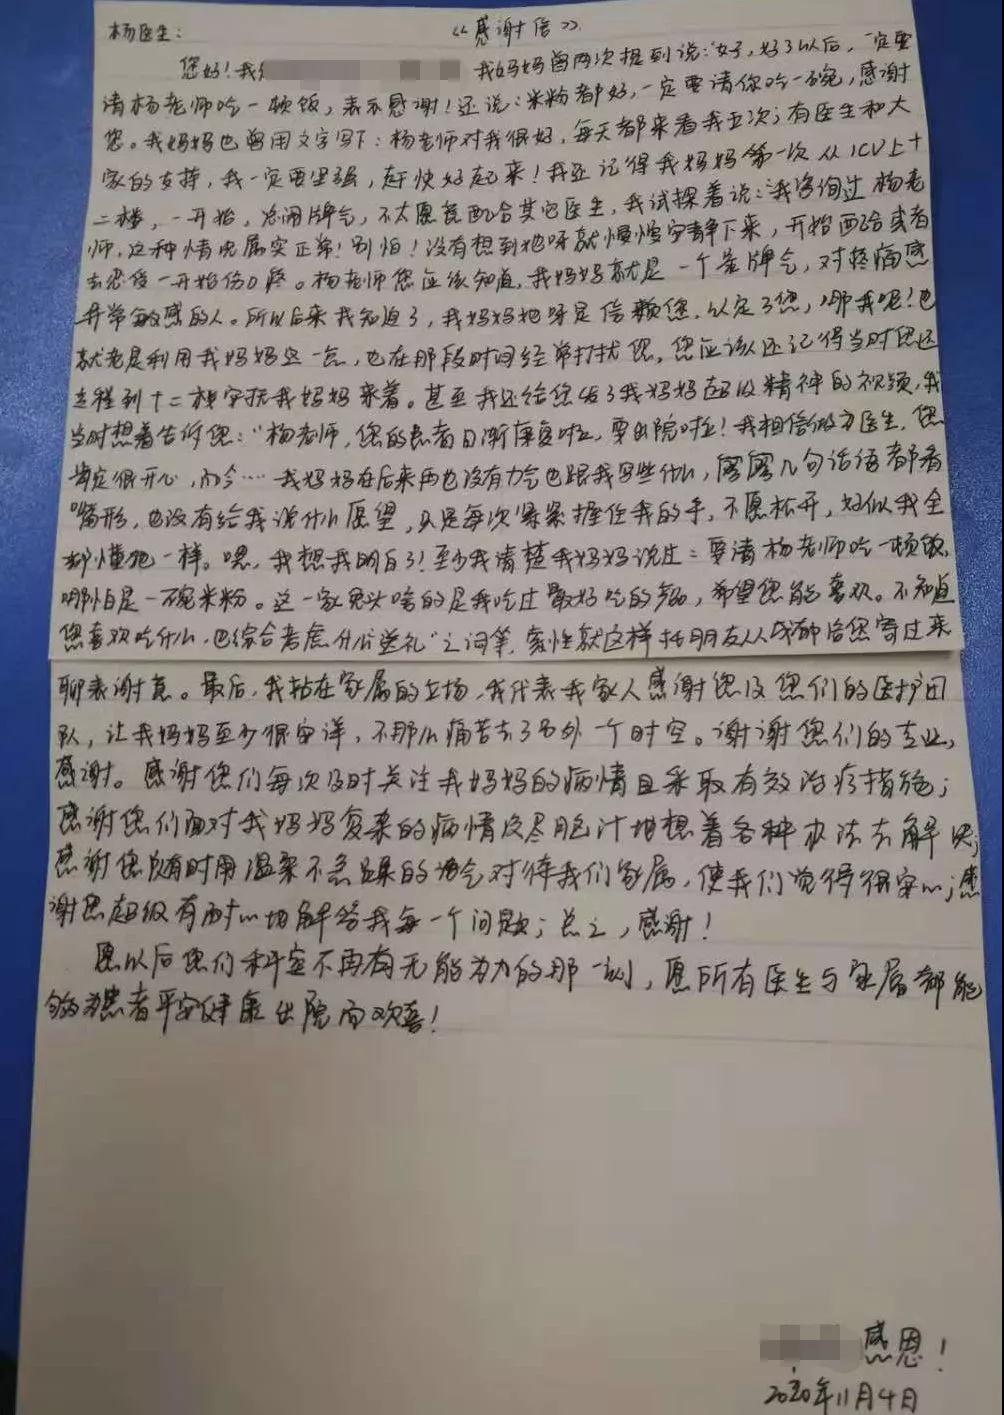 《感谢信》
杨医生：
您好！我 我妈妈曾两次提到说："好，好了以后，一定要
请杨老师吃一顿饭，表示感谢！还说：米粉都好，一定要请你吃一碗，感谢
您。我妈妈也曾用文字写下：杨老师对我很好，每天都来看我五次；有医生和大
家的支持，我一定要坚强，赶快好起来！我还记得我妈妈第一次从ICU上十
二楼，一开始，总闹脾气，不太愿意配合其它医生，我试探着说："我咨询过杨老
师，这种情况属实正常！别怕！没有想到她呀就慢慢安静下来，开始配合或者
去忍受一开始伤口疼。杨老师您应该知道，我妈妈就是一个急脾气，对疼痛感
异常敏感的人。所以后来我知道了，我妈妈她呀是信赖您，认定了您，哪我呢！也
就老是利用我妈妈这一点，也在那段时间经常打扰您。您应该还记得当时您还
专程到十二楼安抚我妈妈来着。甚至我还给您发了我妈妈超级精神的视频，我
当时想着告诉您："杨老师，您的患者日渐康复啦，要出院啦！我相信做为医生，您
肯定很开心，而今……我妈妈在后来再也没有力气也跟我写些什么，寥寥几句话语都看
嘴形，也没有给我说什么愿望，只是每次紧紧握住我的手，不愿松开，好似我全
都懂她一样。嗯，我想我明白了！至少我清楚我妈妈说过：要请杨老师吃一顿饭，
哪怕是一碗米粉。这一家兔头啥的是我吃过最好吃的，希望您能喜欢。不知道
您喜欢吃什么，也综合考虑什么"送礼"之词等，索性就这样托朋友从成都给您寄过来
聊表谢意。最后，我站在家属的立场，我代表我家人感谢您及您们的医护团
队，让我妈妈至少很安详，不那么痛苦去了另外一个时空。谢谢您们的专业，
感谢。感谢您们每次及时关注我妈妈的病情且采取有效治疗措施；
感谢您们面对我妈妈复杂的病情绞尽脑汁地想着各种办法去解决；
感谢您随时用温柔不急躁的语气对待我们家属，使我们觉得很安心；感
谢您超级有耐心地解答我每一个问题；总之，感谢！
愿以后您们科室不再有无能为力的那一刻，愿所有医生与家属都能
够为患者平安健康出院而欢喜！
感恩！
2020年11月4日